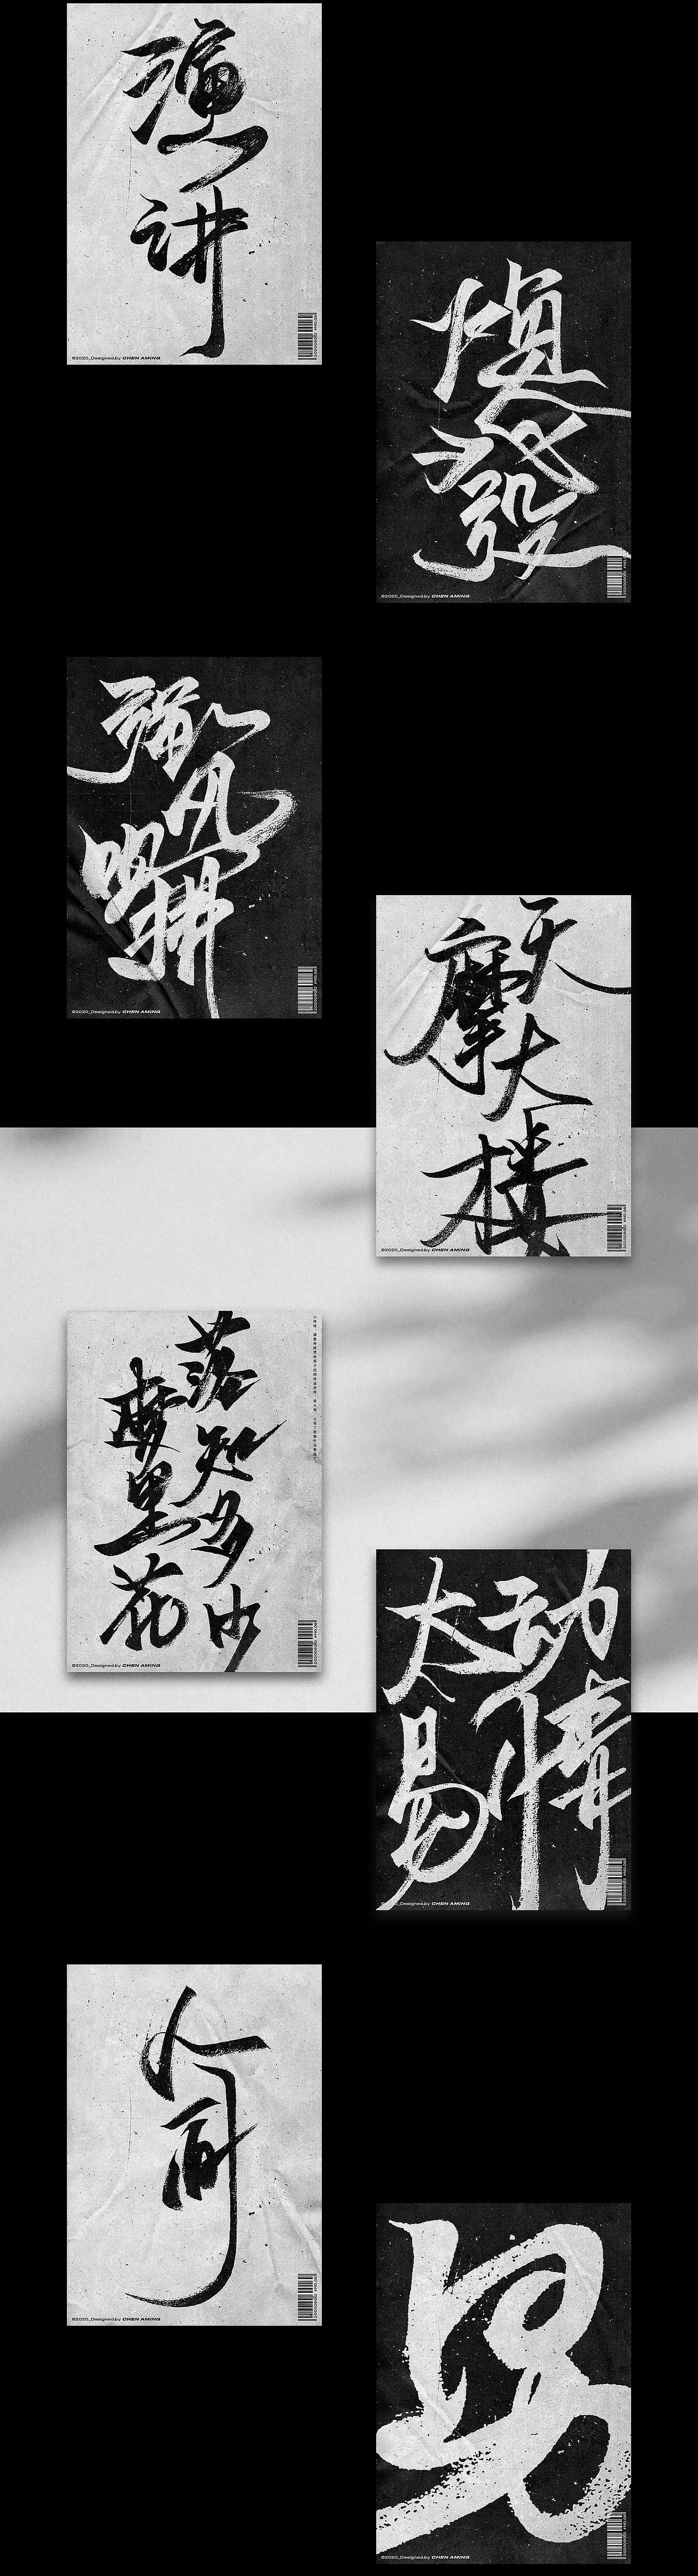 演讲
©2020_Designed by CHEN AMING
發
©2020_Designed by CHEN AMING
强风
吹拂
©2020_Designed by CHEN AMING
摩天大楼
©2020_Designed by CHEN AMING
梦里花
落知多少
©2020_Designed by CHEN AMING
太易
动情
©2020_Designed by CHEN AMING
人间
©2020_Designed by CHEN AMING
©2020_Designed by CHEN AMING